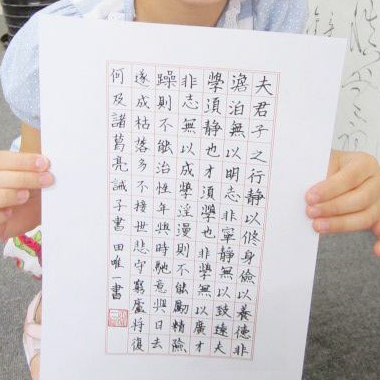 夫君子之行静以修身儉以養德非
澹泊無以明志非寧静無以致遠夫
學須静也才須學也非學無以廣才
非志無以成學淫漫則不能勵精險
躁則不能治性年與時馳意與日去
遂成枯落多不接世悲守窮廬將復
何及諸葛亮誡子書 田唯一書